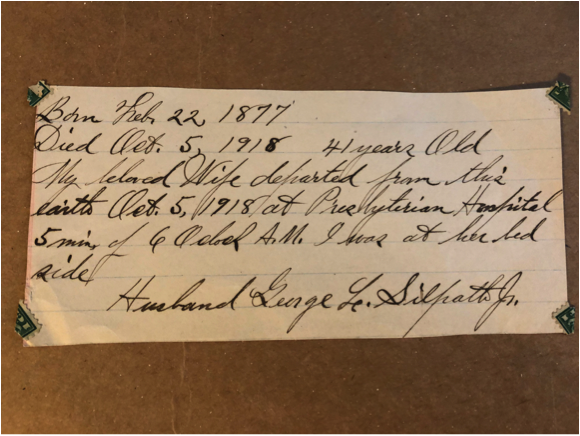 Born Feb. 22, 1877
Died Oct. 5, 1918 41 years Old
My beloved Wife departed from this
earth Oct. 5, 1918 at Presbyterian Hospital
5 min. of 6 A.M. I was at her bed
side
Husband George L. Silpath Jr.